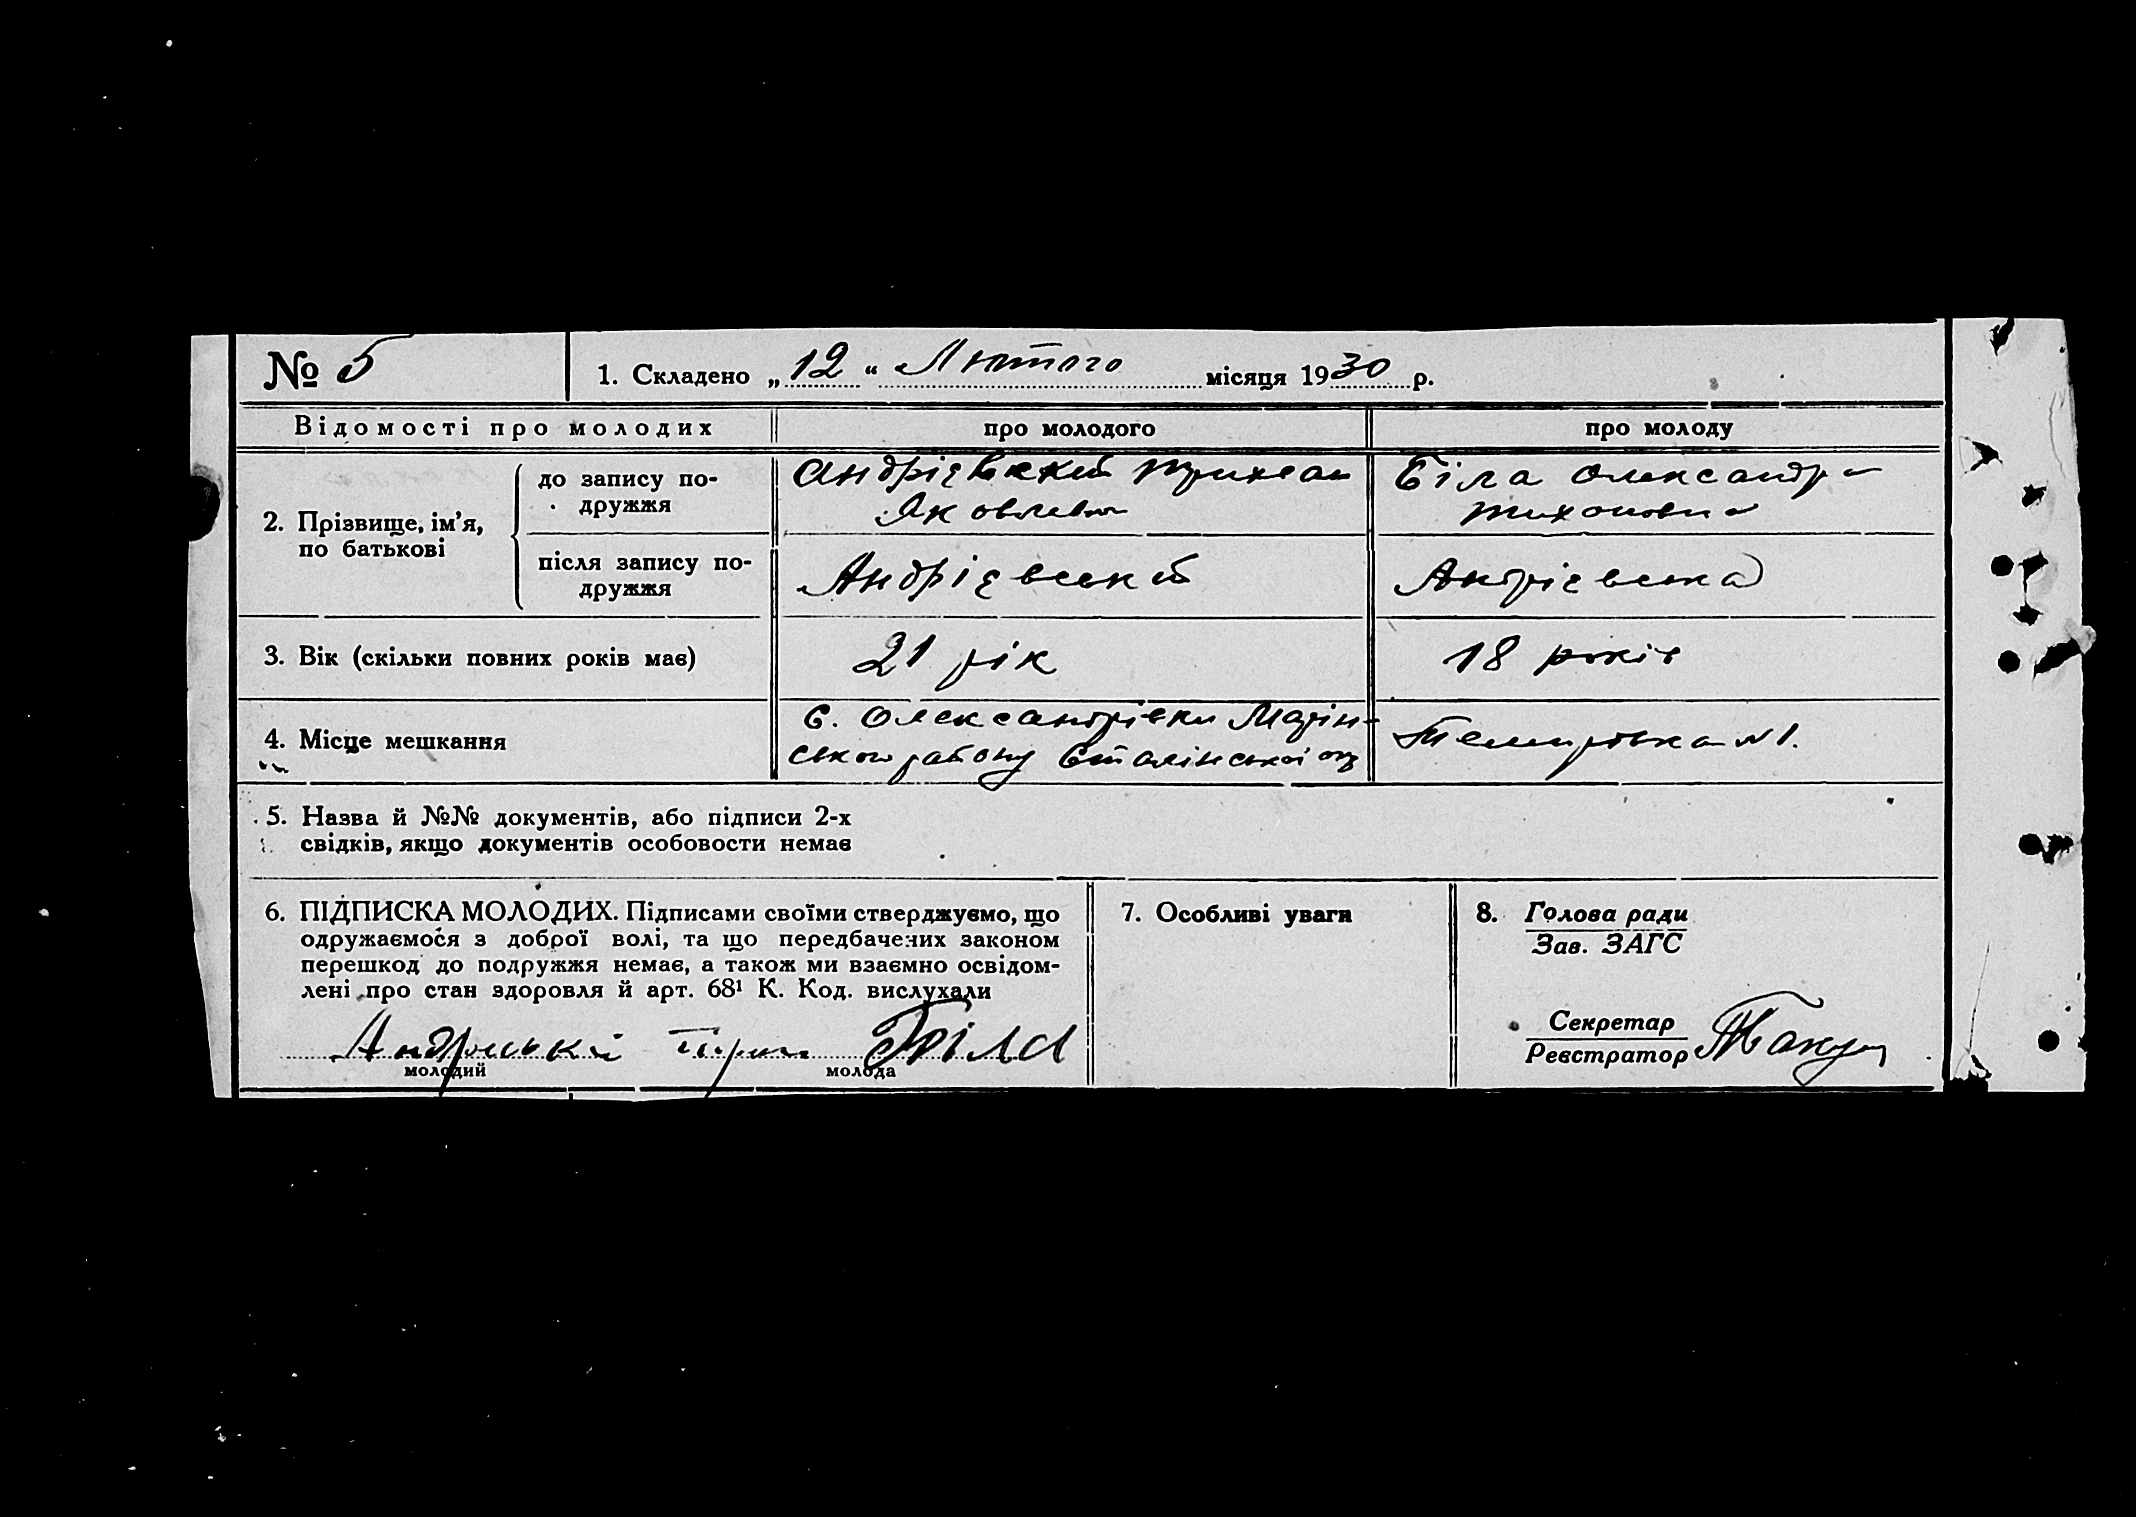 № 5
1. Складено „ 12 “ Лютого місяця 1930 р.
Відомості про молодих
про молодого
про молоду
2. Прізвище, ім’я,
по батькові
до запису по-
дружжя
Андрієвский
Яковлевич
Біла Олександра
Тихоновна
після запису по-
дружжя
Андрієвський
Андрієвська
3. Вік (скільки повних років має)
21 рік
18 років
4. Місце мешкання
с. Олександрівки Марін-
ського району Сталінської окр
Темирівка № 1.
5. Назва й №№ документів, або підписи 2-х
свідків, якщо документів особовости немає
6. ПІДПИСКА МОЛОДИХ. Підписами своїми стверджуємо, що
одружаємося з доброї волі, та що передбачених законом
перешкод до подружжя немає, а також ми взаємно освідом-
лені про стан здоровля й арт. 68¹ К. Код. вислухали
Біла
молодий
молода
7. Особливі уваги
8. Голова ради
Зав. ЗАГС
Секретар
Реєстратор